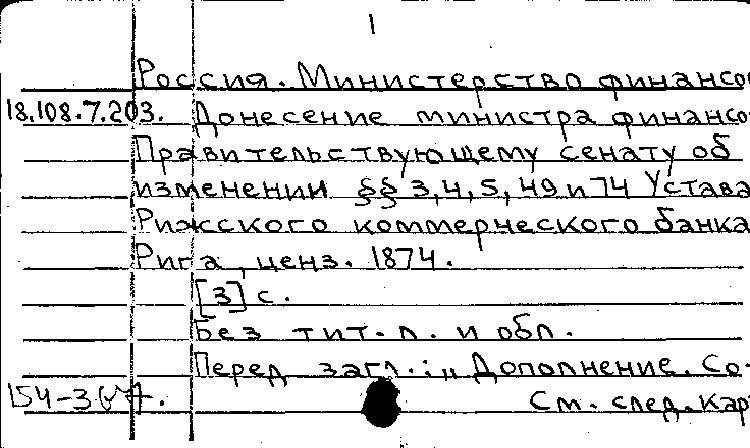 1
Россия. Министерство финансо
18.108.7.203. Донесение министра финансо
Правительствующему сенату об
изменении §§ 3, 4, 5, 49 и 74 Устава
Рижского коммерческого банка
Рига, ценз. 1874.
[3] с.
Без тит. л. и обл.
Перед загл.: „Дополнение. Со-
См. след. кар